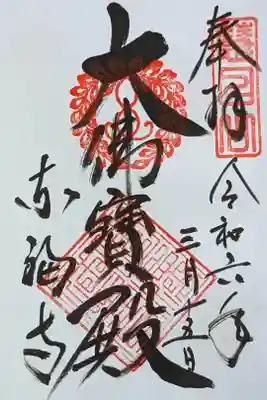 奉拝
令和六年
三月十五日
大佛寳殿
東福寺